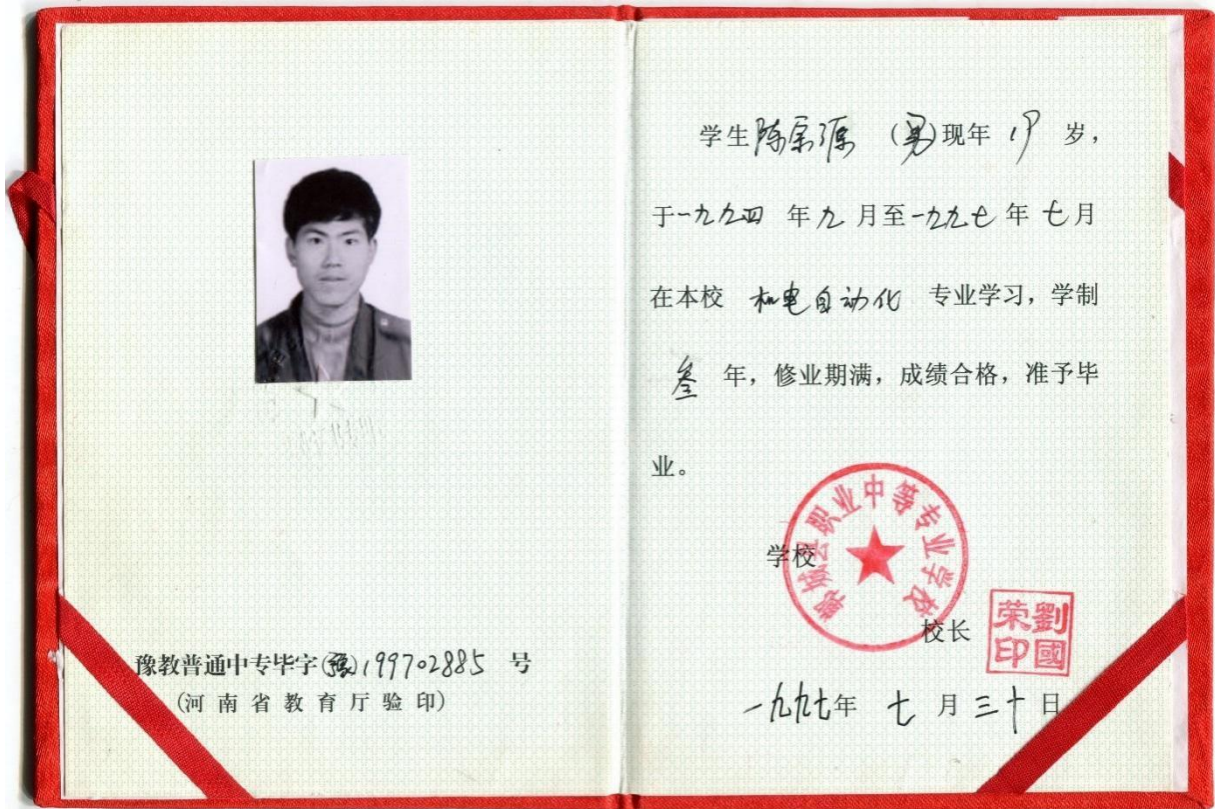 豫教普通中专毕字(豫)199702885 号
(河南省教育厅验印)
学生陈宗源 (男)现年 19 岁,
于一九九四 年九 月至一九九七 年 七月
在本校 机电自动化 专业学习,学制
叁 年,修业期满,成绩合格,准予毕
业。
学校
县职业中等专业学校
校长
劉國荣印
一九九七年 七 月 三十 日